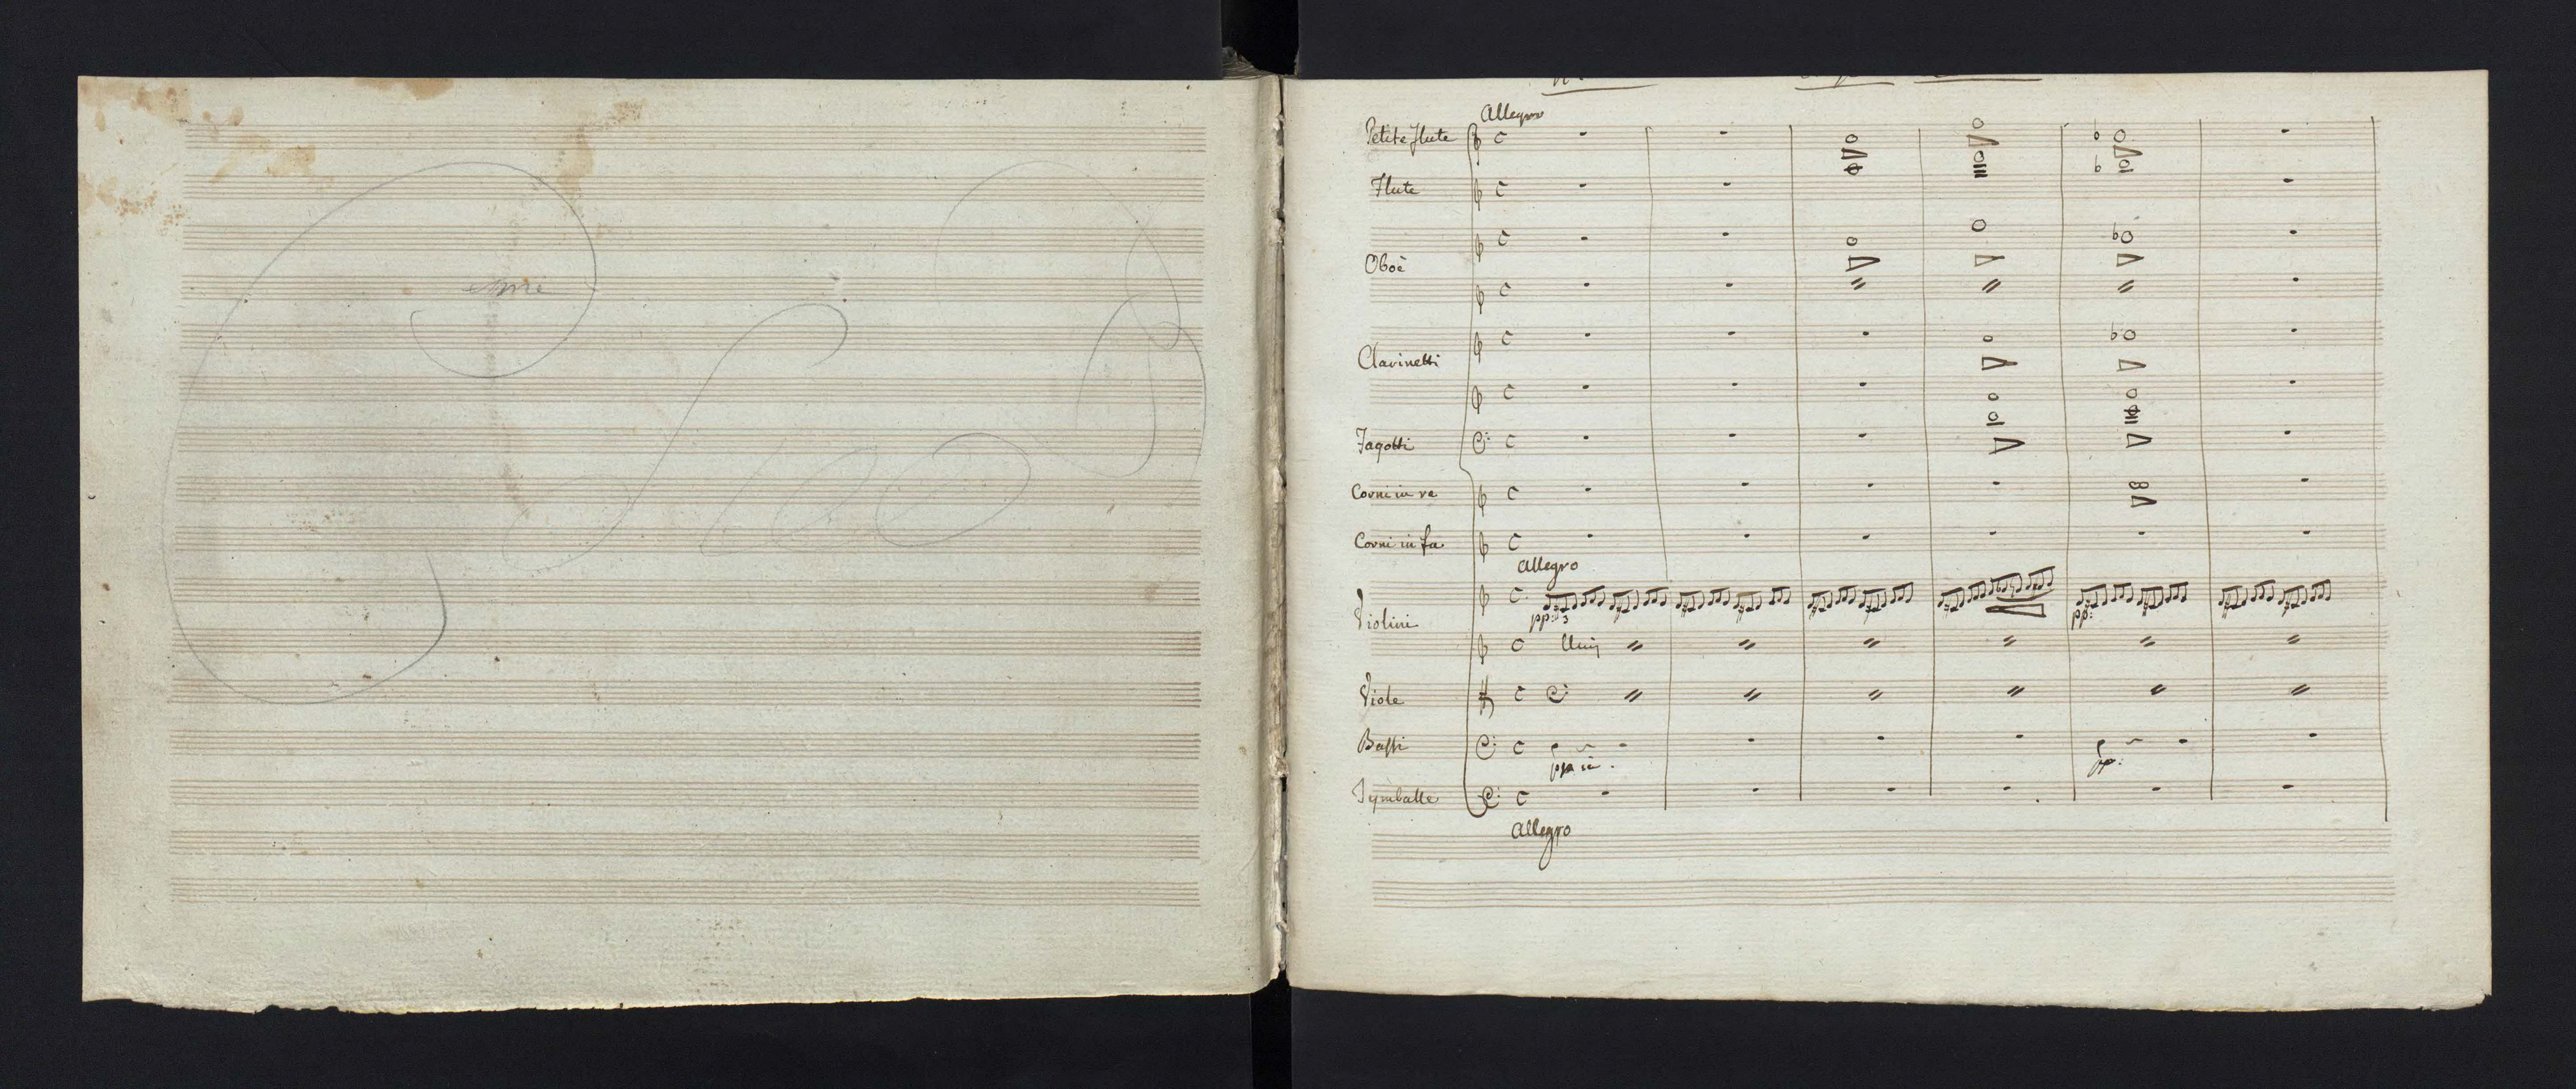 Allegro
Petite flute
Flute
Oboè
Clarinetti
Fagotti
Corni in re
Corni in fa
Allegro
Violini
pp: 3
pp:
Unis
Viole
Bassi
pp:
Tymballe
Allegro